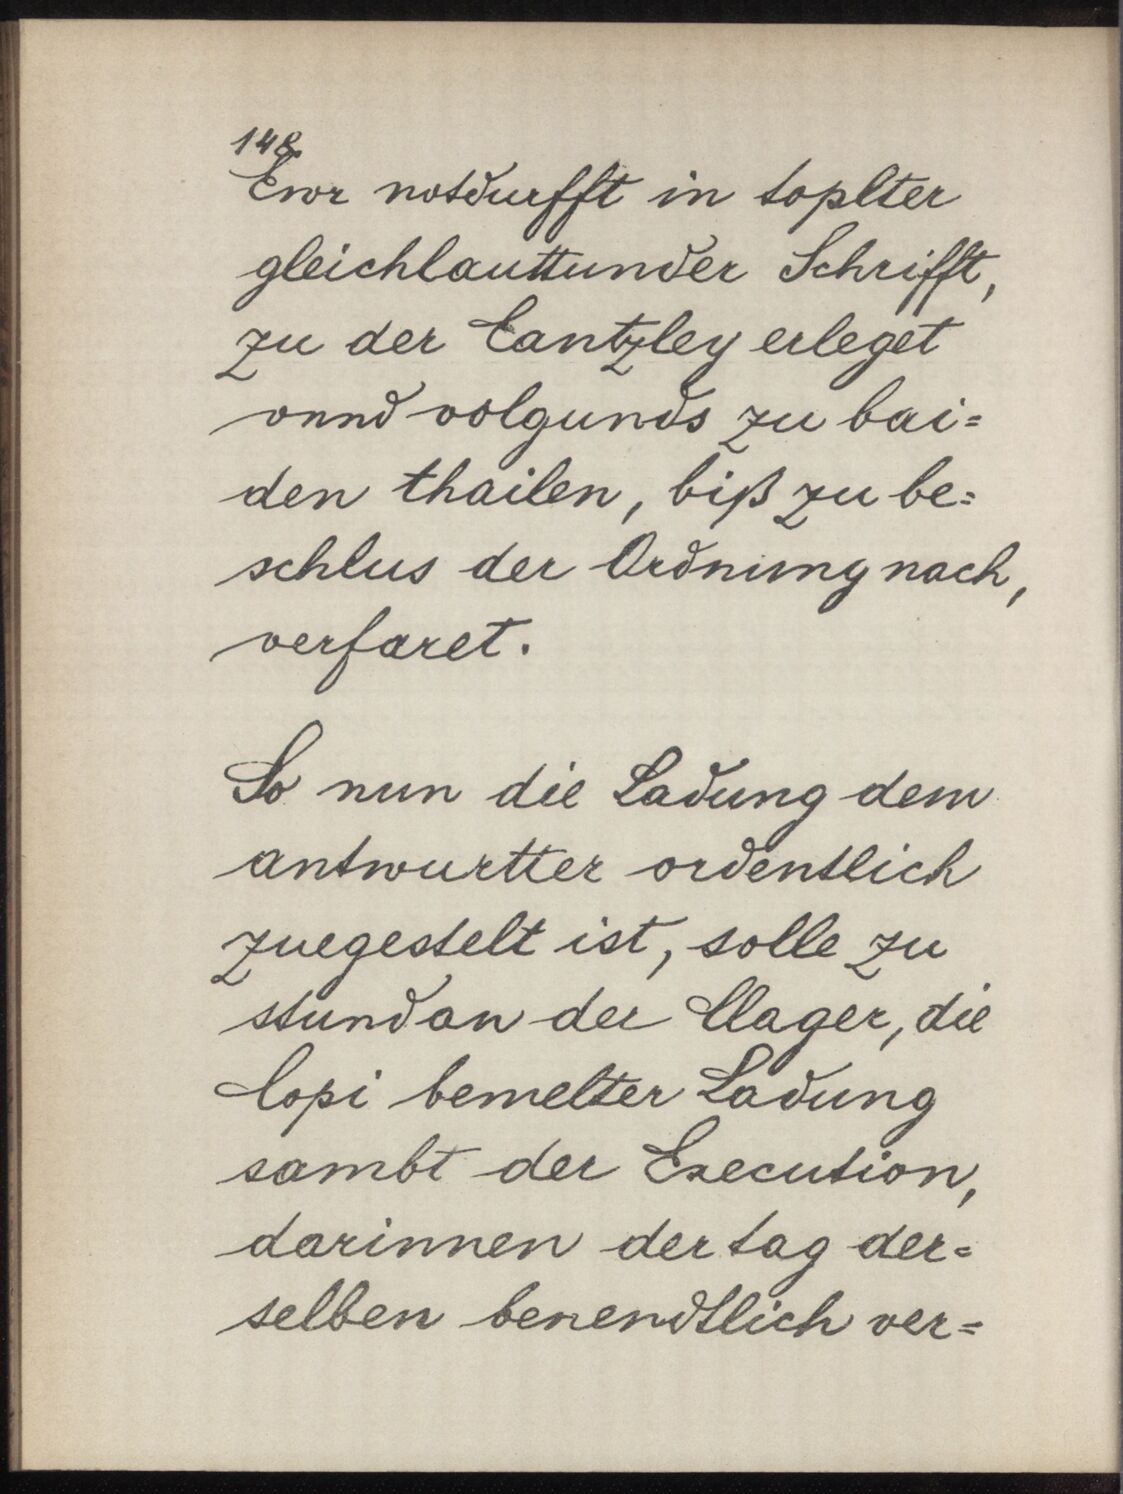 148.
Ewr notdurfft in toplter
gleichlauttunder Schrifft,
zu der Cantzley erleget
vnnd volgunds zu bai=
den thailen, biß zu be=
schlus der Ordnung nach,
verfaret.
So nun die Ladung dem
antwurtter ordentlich
zuegestelt ist, solle zu
stundan der Clager, die
Copi bemelter Ladung
sambt der Execution,
darinnen der tag der=
selben benendtlich ver=